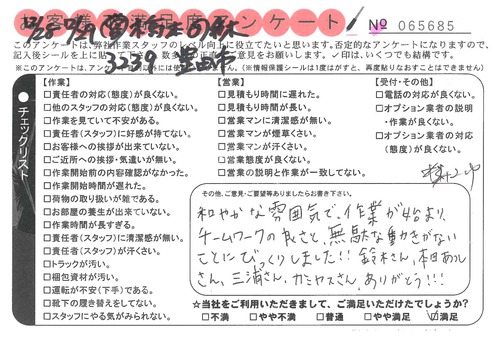 お客様満足度アンケート
№ 065685
このアンケートは、弊社作業スタッフのレベル向上に役立てたいと思います。否定的なアンケートになりますので、
記入後シールを上に貼って下さい。✓印は、いくつでも結構です。
【作業】
□責任者の対応(態度)が良くない。
□他のスタッフの対応(態度)が良くない。
□作業を見ていて不安がある。
□責任者(スタッフ)に好感が持てない。
□お客様への挨拶が出来ていない。
□ご近所への挨拶・気遣いが無い。
□作業開始前の内容確認がなかった。
□作業開始時間が遅れた。
□荷物の取り扱いが雑である。
□お部屋の養生が出来ていない。
□作業時間が長すぎる。
□責任者(スタッフ)に清潔感が無い。
□責任者(スタッフ)が汗くさい。
□トラックが汚い。
□梱包資材が汚い。
□運転が不安(下手)である。
□靴下の履き替えをしてない。
□スタッフにやる気がみられない。
チェックリスト
【営業】
□見積もり時間に遅れた。
□見積もり時間が長い。
□営業マンに清潔感が無い。
□営業マンが煙草くさい。
□営業マンが汗くさい。
□営業態度が良くない。
□営業の説明と作業が一致してない。
【受付・その他】
□電話の対応が良くない。
□オプション業者の説明
・作業が良くない。
□オプション業者の対応
(態度)が良くない。
その他、ご意見・ご要望等ありましたらお書き下さい。
和やかな雰囲気で、作業が始まり、
チームワークの良さと、無駄な動きがない
ことにびっくりしました!! 鈴木さん、相あい
さん、三浦さん、カミヤスさん、ありがとう!!!
☆当社をご利用いただきまして、ご満足いただけたでしょうか?
□不満 □やや不満 □普通 □やや満足 ☑満足